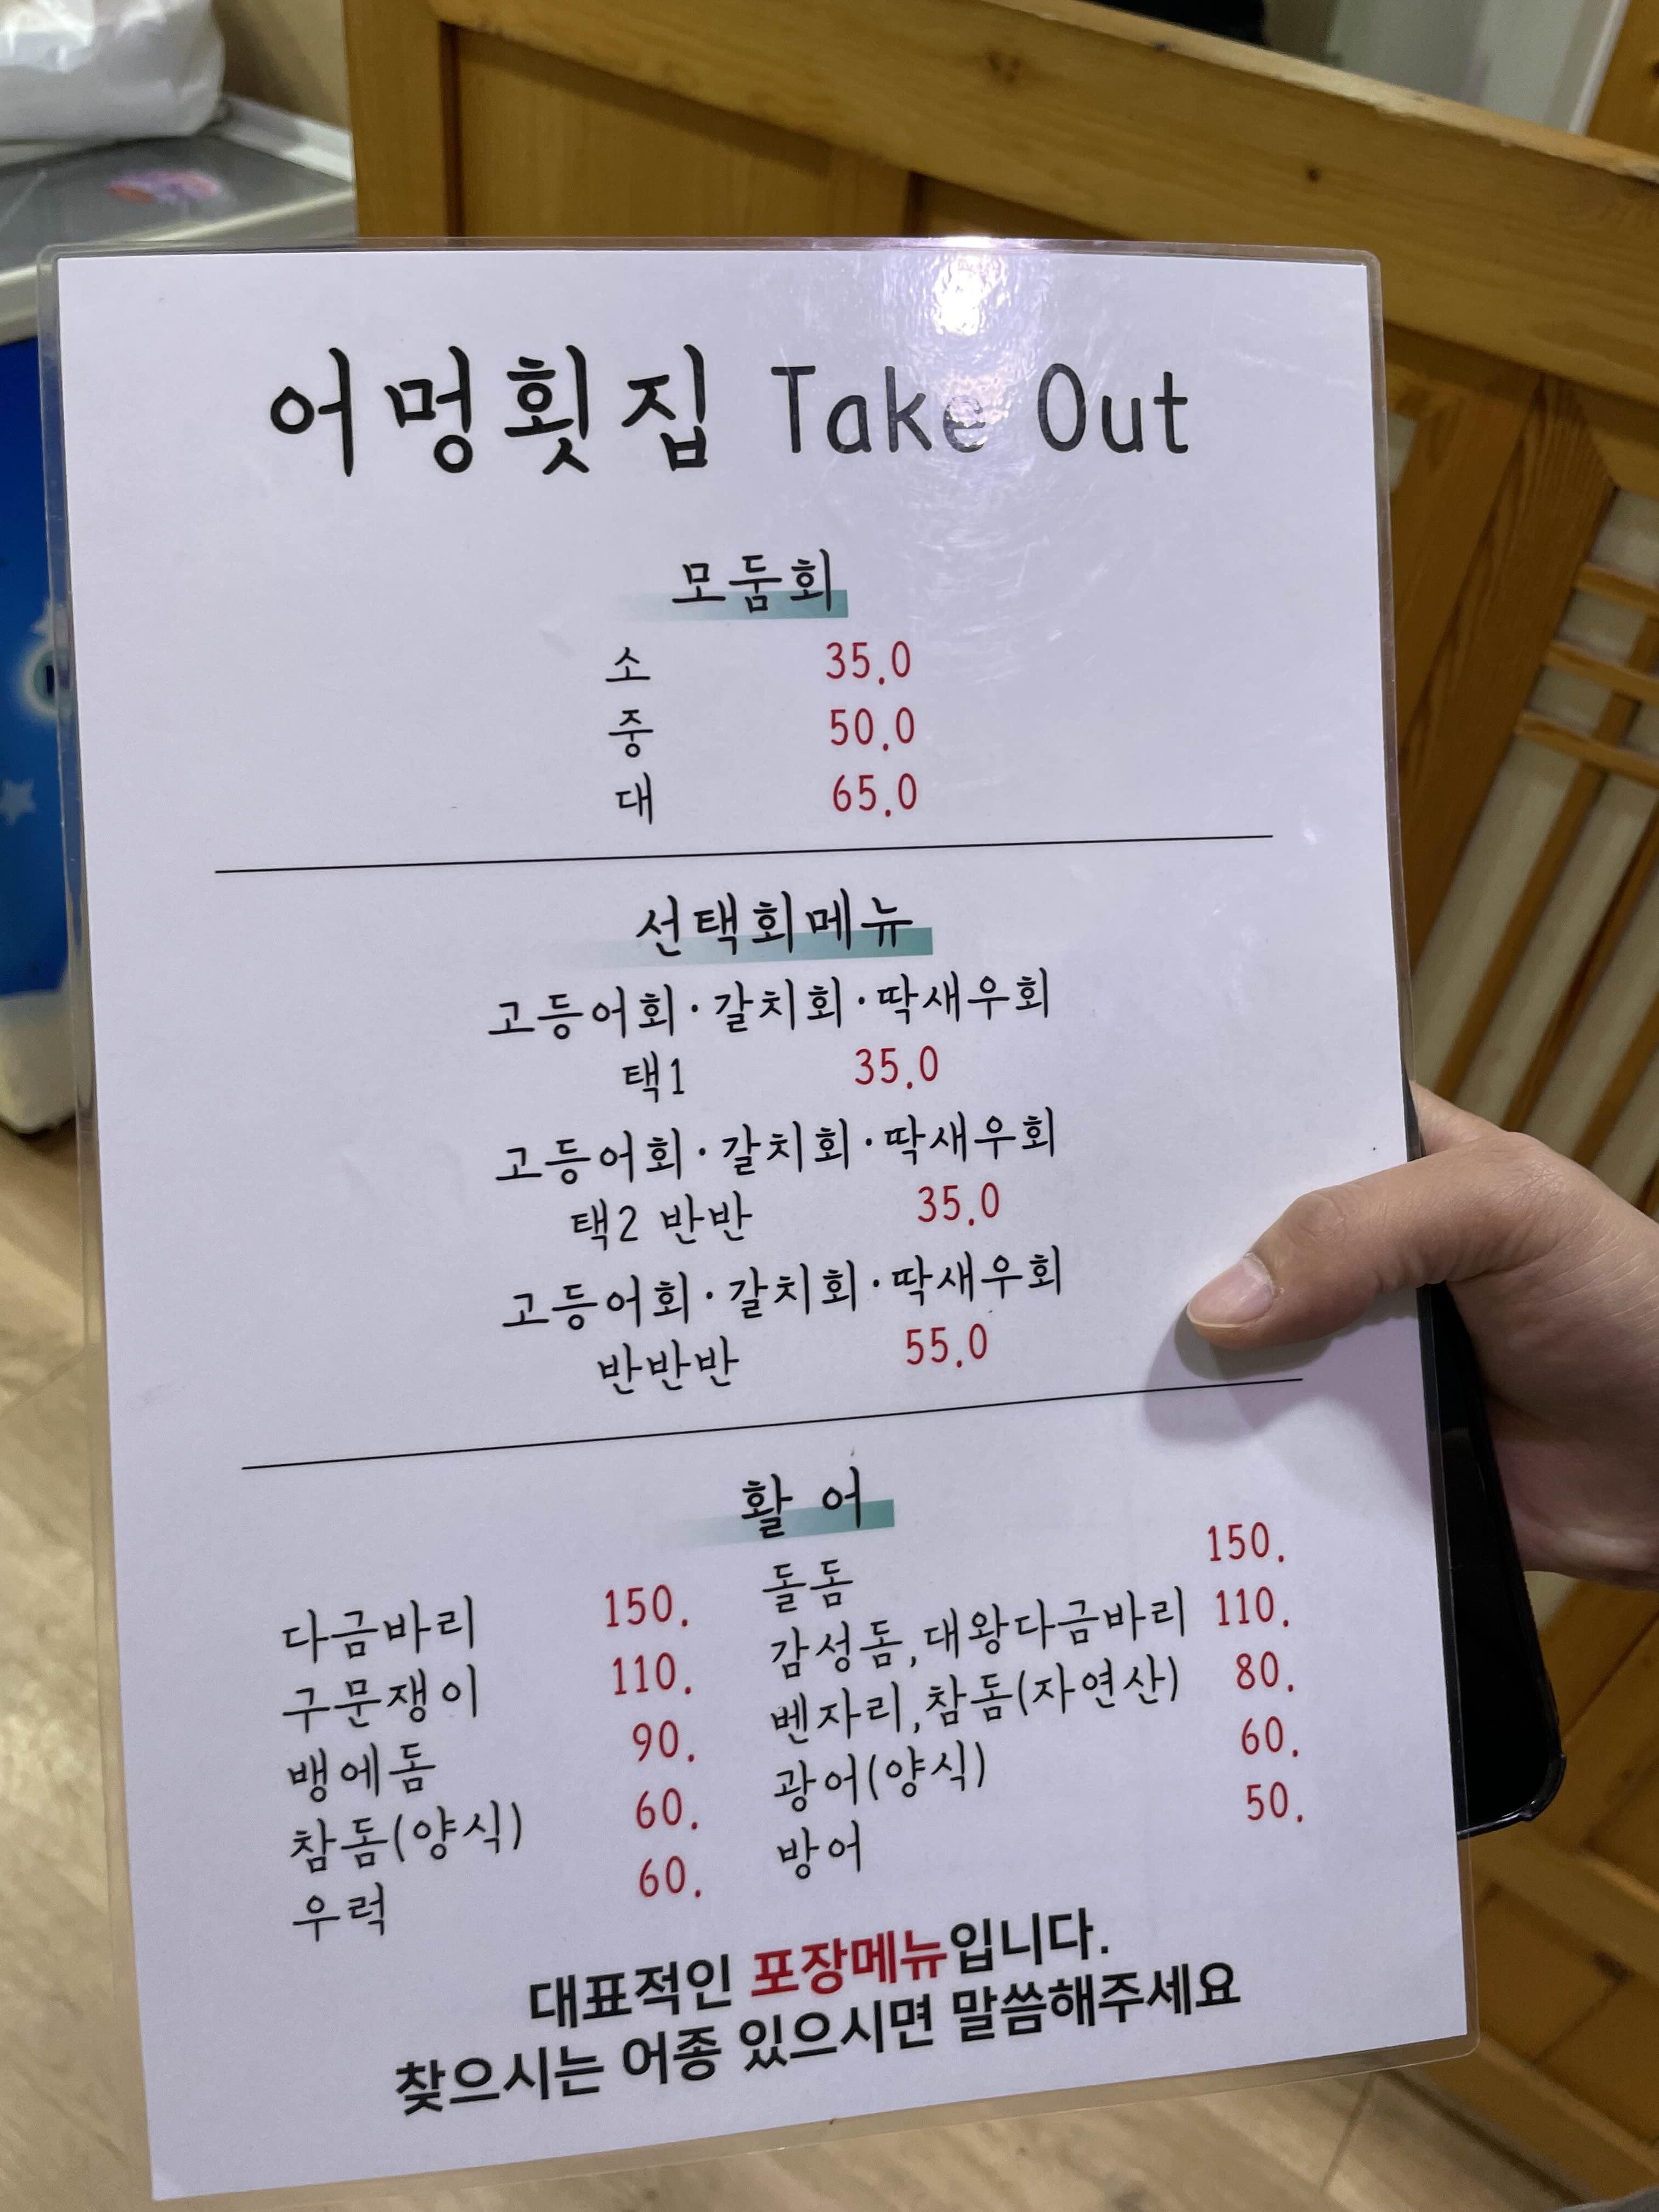 어멍횟집 Take Out
모둠회
소 35.0
중 50.0
대 65.0
선택회메뉴
고등어회·갈치회·딱새우회
택1 35.0
고등어회·갈치회·딱새우회
택2 반반 35.0
고등어회·갈치회·딱새우회
반반반 55.0
활 어
다금바리 150. 돌돔 150.
구문쟁이 110. 감성돔,대왕다금바리 110.
뱅에돔 90. 벤자리,참돔(자연산) 80.
참돔(양식) 60. 광어(양식) 60.
우럭 60. 방어 50.
대표적인 포장메뉴입니다.
찾으시는 어종 있으시면 말씀해주세요